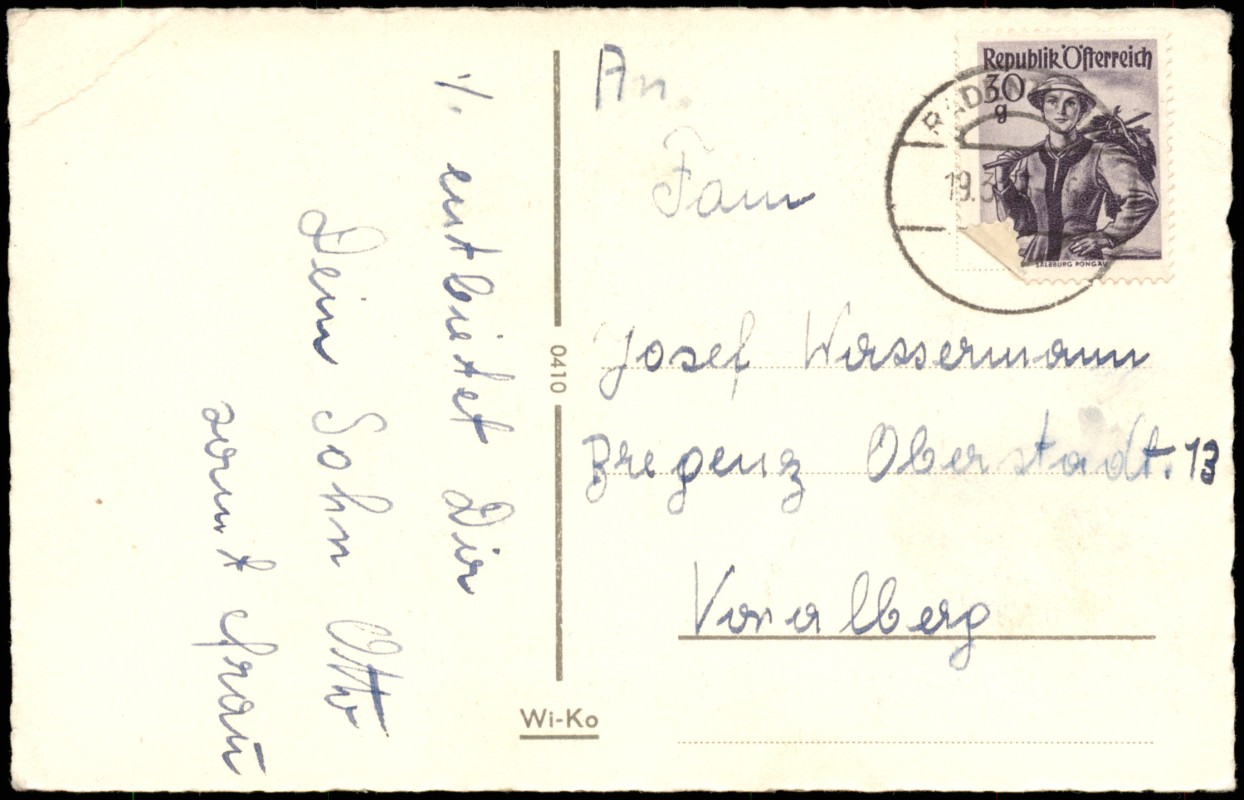 1/.
entbietet Dir
Dein Sohn Otto
samt Frau
0410
Wi-Ko
An
Fam
Josef Wassermann
Bregenz Oberstadt. 13
Vorarlberg
Republik Österreich
30
g
SALZBURG PONGAU
19.3